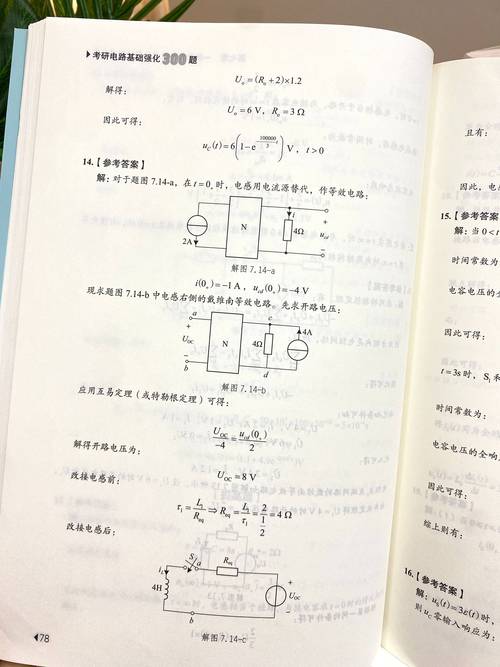 ▶考研电路基础强化300题
Uₒ=(R₀+2)×1.2
解得：
Uₒ=6 V，R₀=3 Ω
因此可得：
u_C(t)=6(1−e^(−100000/3 t)) V，t>0
14.【参考答案】
解：对于题图7.14-a，在t=0₊时，电感用电流源替代，作等效电路：
2A
N
i
4Ω
+
u_cd
−
解图 7.14-a
i(0₊)=−1 A，u_cd(0₊)=−4 V
现求题图7.14-b中电感右侧的戴维南等效电路。先求开路电压：
a
+
U_OC
−
b
N
4Ω
c
d
4A
解图 7.14-b
应用互易定理（或特勒根定理）可得：
U_OC/−4=u_cd(0₊)/2
解得开路电压为：
U_OC=8 V
改接电感前：
τ₁=L₁/R_eq⇒R_eq=L₁/τ₁=2/(1/2)=4 Ω
改接电感后：
i_L
4H
S
a
R_eq
+
U_OC
−
b
解图 7.14-c
◀78
且有：
因此，电
15.【参考答案
解：当0<t
时间常数为
电容电压的全
因此可得：
t=3s时，S₁和
时间常数为：
电容电压的全响
因此可得：
综上则有：
16.【参考答案】
解：u_S(t)=3ε(t)时，
则u_C零输入响应为：